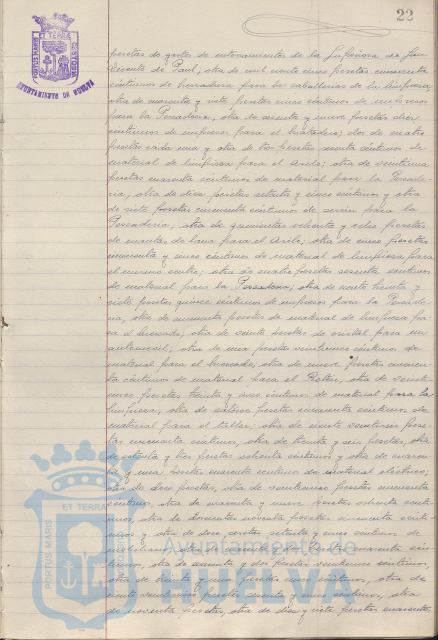 22
PORTUS MARIS ET TERRAE CUSTODIA
AYUNTAMIENTO DE HUELVA
pesetas de gastos de entretenimiento de la de San
Vicente de Paul; otra de mil cinco pesetas cincuenta
céntimos de para las caballerías de la limpieza;
otra de cuarenta y siete pesetas cinco céntimos de impresos
para la Pescadería, otra de sesenta y nueve pesetas diez
céntimos de impresos para el Matadero; dos de cuatro
pesetas cada una y otra de tres pesetas sesenta céntimos de
material de limpieza para el Asilo; otra de
pesetas cuarenta céntimos de material para la Pescade-
ría, otra de diez pesetas setenta y cinco céntimos y otra
de siete pesetas cincuenta céntimos de para la
Pescadería, otra de quinientas ochenta y ocho pesetas
de mantas de lana para el Asilo; otra de cinco pesetas
cincuenta y cinco céntimos de material de limpieza para
el mismo; otra de cuatro pesetas sesenta céntimos
de material para la Pescadería; otra de treinta y
siete pesetas quince céntimos de impresos para la Pescade-
ría, otra de cincuenta pesetas de material de limpieza pa-
ra el Mercado, otra de veinte pesetas de cristal para un
automóvil; otra de una peseta veinticinco céntimos de
material para el Mercado, otra de nueve pesetas cuaren-
ta céntimos de material para el; otra de
cinco pesetas treinta y cinco céntimos de material para la
limpieza, otra de catorce pesetas cincuenta céntimos de
material para el taller, otra de pese-
tas cincuenta céntimos, otra de treinta y seis pesetas, otra
de y tres pesetas ochenta céntimos y otra de cuaren-
ta y una pesetas cuarenta céntimos de material eléctrico;
otra de doce pesetas, otra de pesetas cincuenta
céntimos, otra de cuarenta y nueve pesetas ochenta cénti-
mos, otra de doscientas noventa pesetas cincuenta cénti-
mos y otra de doce pesetas setenta y cinco céntimos de
cuarenta cén-
timos, otra de y dos pesetas céntimos,
otra de treinta y una pesetas cinco céntimos, otra de
pesetas sesenta y cinco céntimos, otra
de noventa pesetas, otra de diez y siete pesetas cuarenta
PORTUS MARIS ET TERRA
Ayuntamiento de
HUELVA